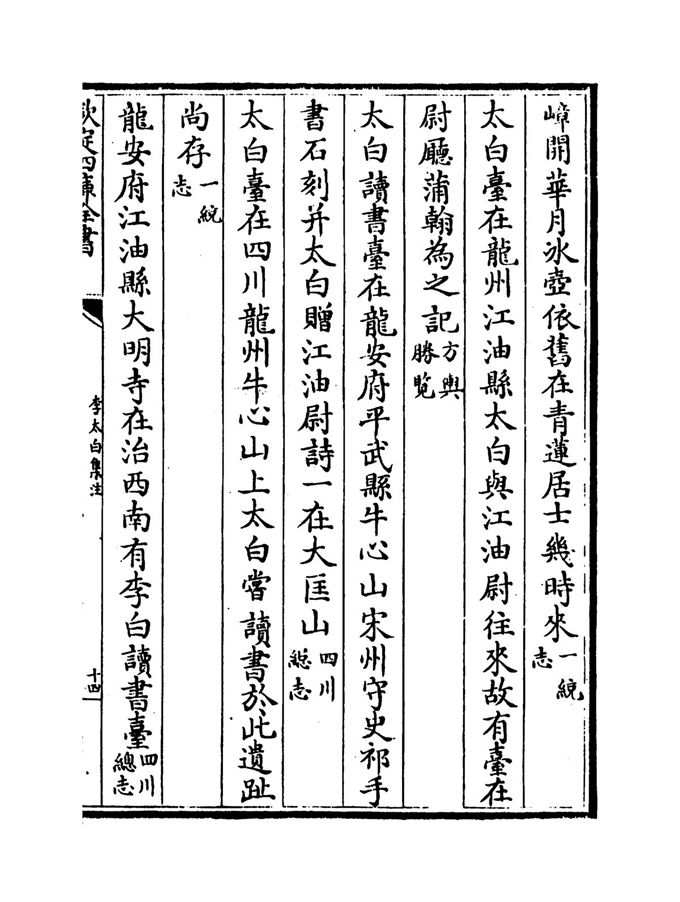 嶂開華月冰壺依舊在青蓮居士幾時來一統志
太白臺在龍州江油縣太白與江油尉往來故有臺在
尉廳蒲翰為之記方輿勝覽
太白讀書臺在龍安府平武縣牛心山宋州守史祁手
書石刻并太白贈江油尉詩一在大匡山四川總志
太白臺在四川龍州牛心山上太白嘗讀書於此遺趾
尚存一統志
龍安府江油縣大明寺在治西南有李白讀書臺四川總志
欽定四庫全書
李太白集注
十四